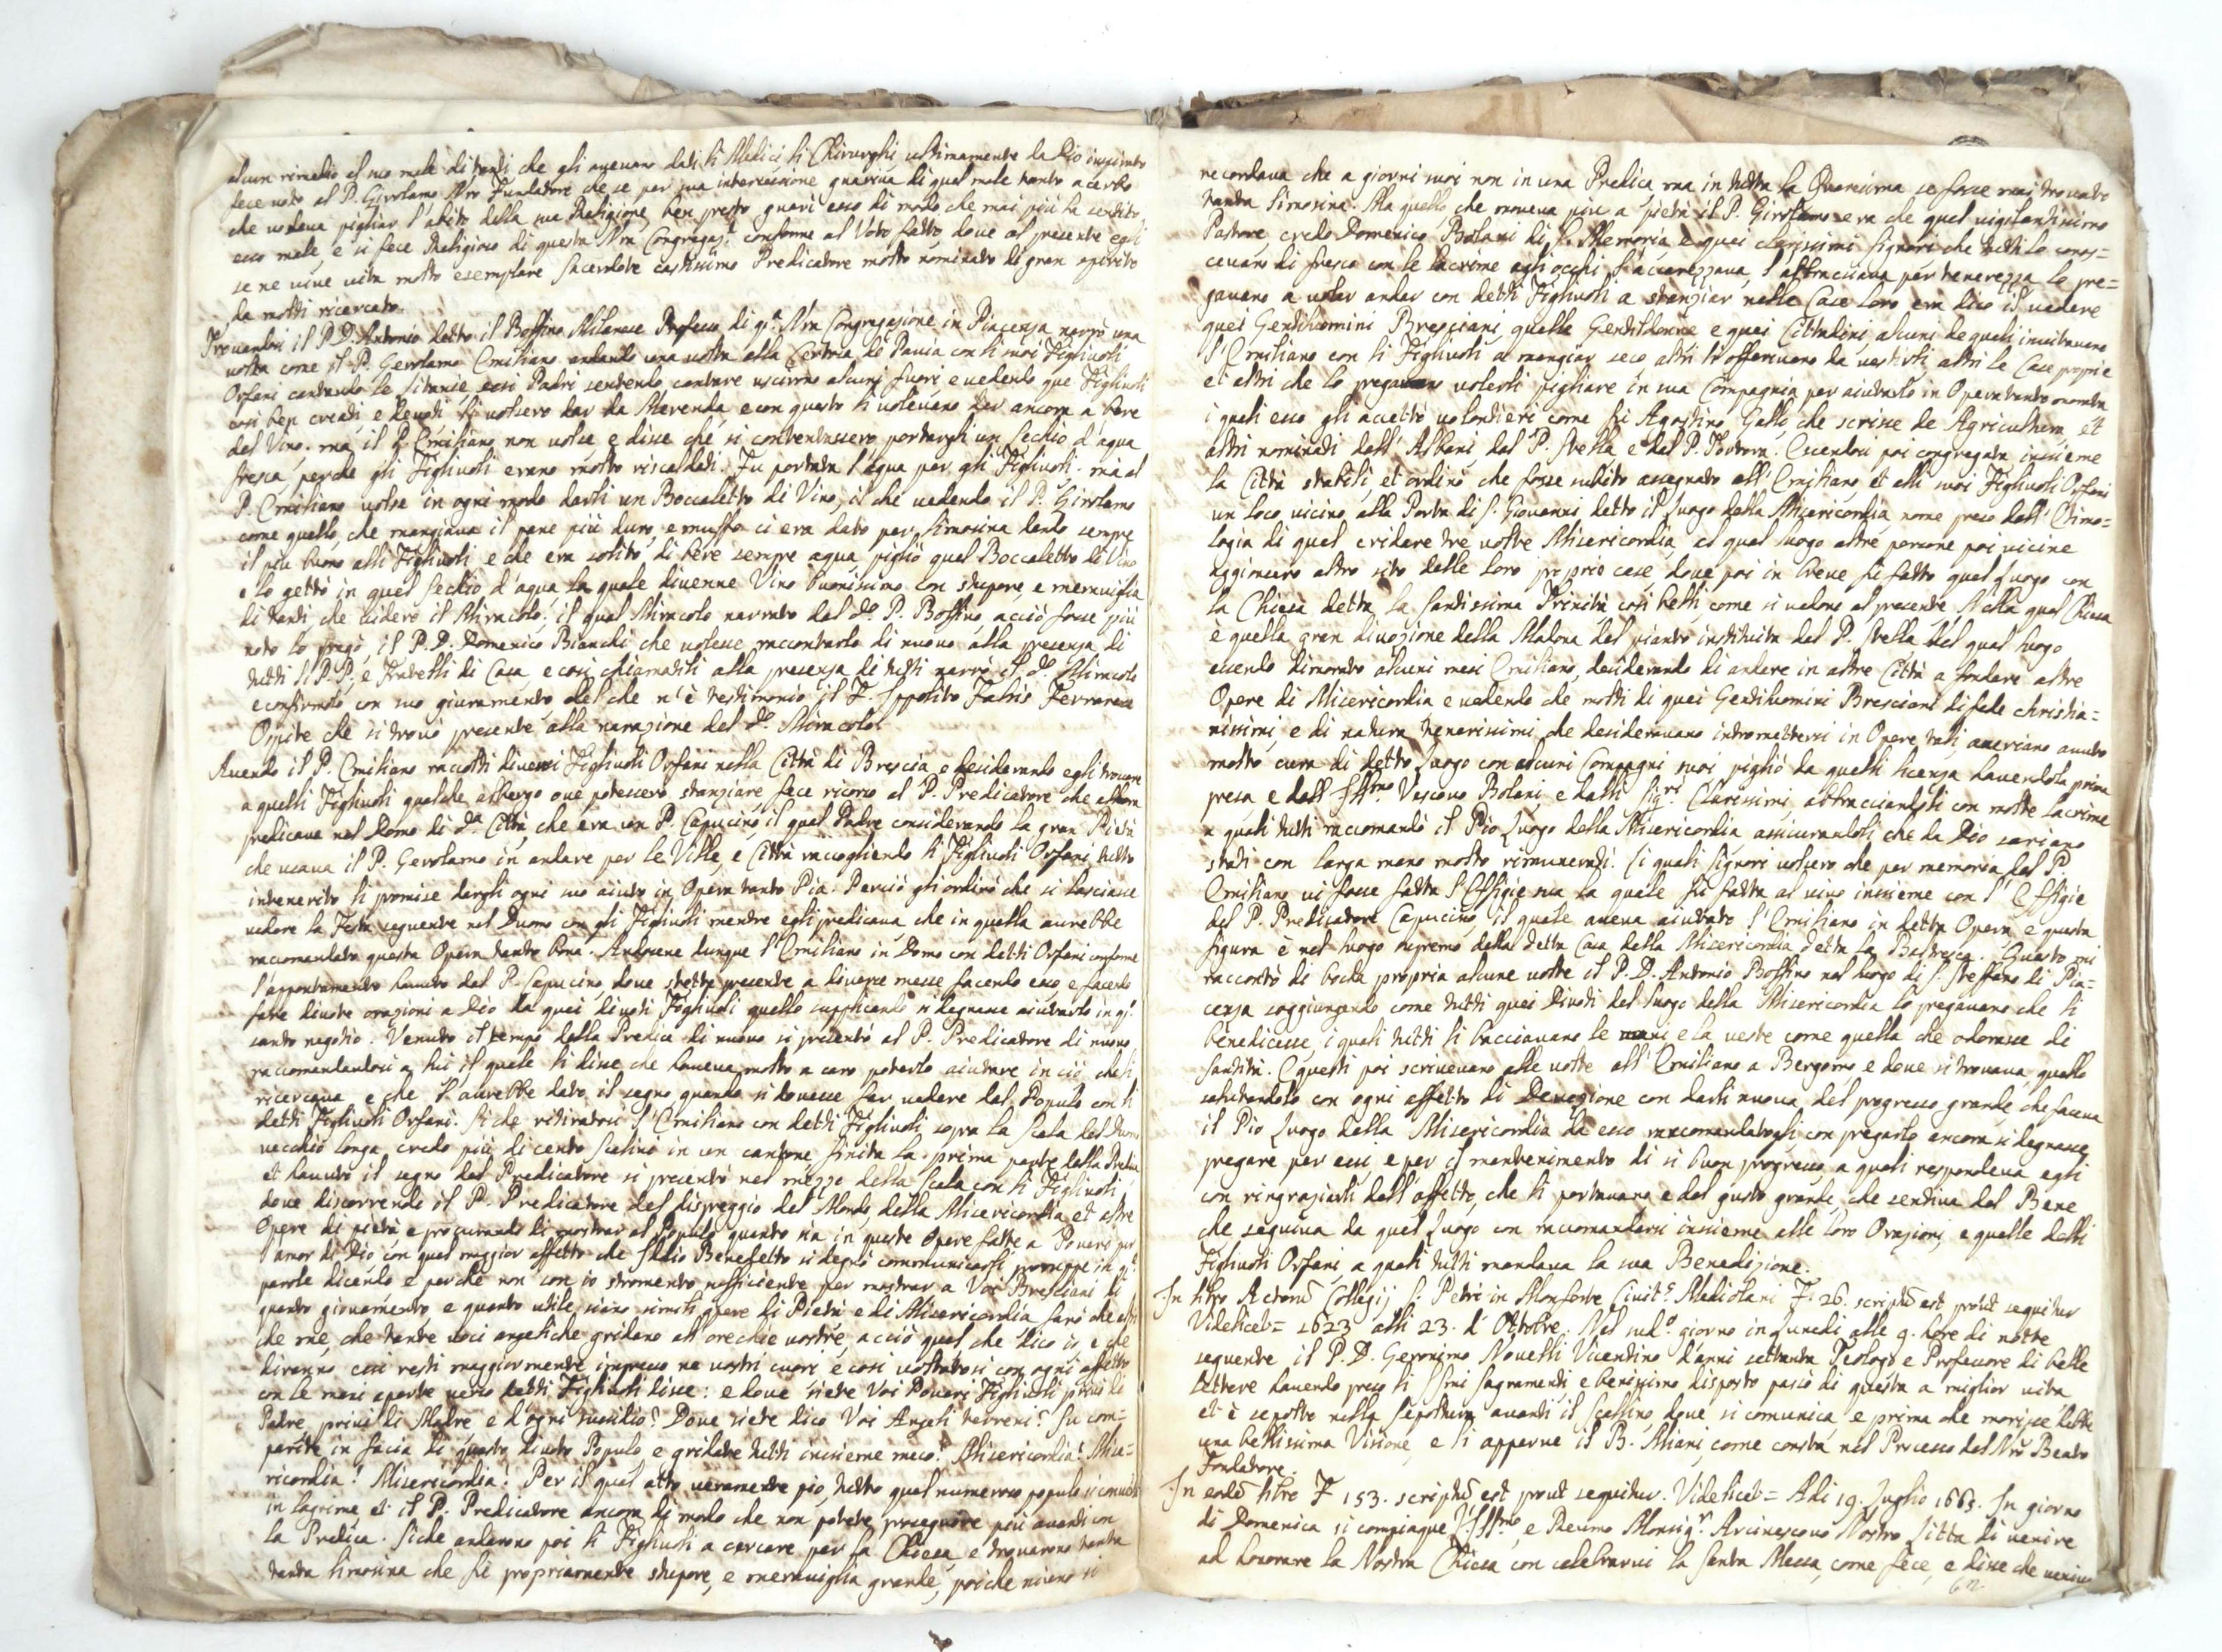 alcun rimedio al suo male di tanti che gli avevano dati li Medici, li Chirurghi ultimamente da Dio inspirato
fece voto al P. Girolamo Nro Fundatore che se per sua intercessione guariva di quel male tanto acerbo
che voleva pigliar l'abito della sua Religione, ben presto guarì esso di modo che mai più ha sentito
esso male e si fece Religioso di questa Nra Congregaz.e conforme al Voto fatto, dove al presente egli
se ne vive vita molto esemplare Sacerdote castissimo Predicatore molto nominato di gran spirito
da molti ricercato.
Trovandosi il P.D. Antonio detto il Boffino Milanese Professo di q.a Nra Congregazione in Piacenza narrò una
volta come il P. Gerolamo Emiliano andando una volta alla Certosa di Pavia con li suoi Figliuoli
Orfani cantando le litanie, essi Padri sentendo cantare uscirno alcuni fuori, e vedendo que Figliuoli
così ben creati, e devoti li volsero dar da Merenda, e con questo li volevano dar ancora a bere
del Vino. ma il P. Emiliano non volse e disse che si contentassero portargli un Sechio d'aqua
fresca, perche gli Figliuoli erano molto riscaldati. Fu portata l'aqua per gli Figliuoli. ma al
P. Emiliano volse in ogni modo darli un Boccaletto di Vino, il che vedendo il P. Girolamo
come quello, che mangiava il pane più duro, e muffo ci era dato per limosina dando sempre
il più buono alli Figliuoli e che era solito di bere sempre aqua, pigliò quel Boccaletto di Vino
e lo gettò in quel sechio d'aqua la quale divenne Vino buonissimo con stupore, e meraviglia
di tanti che videro il Miracolo; il qual Miracolo narrato dal do. P. Boffino, acciò fosse più
noto lo pregò, il P.D. Domenico Bianchi che volesse raccontarlo di nuovo alla presenza di
tutti li P.P. e Fratelli di Casa, e così chiamatili alla presenza di tutti narrò il do. Miracolo
e confirmolo con suo giuramento del che n'è testimonio il F. Ippolito Fabris Ferrarese
Ospite che si trovò presente alla narazione del do. Miracolo.
Avendo il P. Emiliano raccolti diversi Figliuoli Orfani nella Città di Brescia, e desiderando egli trovare
a quelli Figliuoli qualche albergo ove potessero stanziare fece ricorso al P. Predicatore che allora
predicava nel Domo di da. Città, che era un P. Capucino, il qual Padre considerando la gran Pietà
che usava il P. Gerolamo in andare per le Ville, e Città raccogliendo li Figliuoli Orfani, tutto
intenerito li promise dargli ogni suo aiuto in Opera tanto Pia. Perciò gli ordinò che si lasciasse
vedere la Festa seguente nel Duomo con gli Figliuoli mentre egli predicava che in quella aurebbe
racomandata questa Opera tanto bona. Andosene dunque l'Emiliano in Domo con detti Orfani conforme
l'appontamento havuto dal P. Capucino, dove stette presente a diverse messe facendo esso e facendo
fare divote orazioni a Dio da quei divoti Figliuoli quello supplicando si degnasse aiutarlo in q.o
santo negotio. Venuto il tempo della Predica di nuovo si presentò al P. Predicatore di nuovo
raccomandandosi a lui il quale li disse che haveva molto a caro poterlo aiutare in ciò che li
ricercava, e che l'aurebbe dato il segno quando si dovesse far vedere dal Populo con li
detti Figliuoli Orfani. Siche ritiratosi l'Emiliano con detti Figliuoli sopra la Scala del Duomo
vecchio longa credo più di cento scalini in un cantone finita la prima parte della Predica
et havuto il segno dal Predicatore si presentò nel mezzo della Scala con li Figliuoli,
dove discorrendo il P. Predicatore del dispreggio del Mondo, della Misericordia, et altre
Opere di pietà e procurando di mostrar al Popolo quanto sia in queste Opere fatte a Poveri per
amor di Dio con quel maggior affetto che Iddio Benedetto si degnò communicarli proruppe in q.e
parole dicendo e perche non son io stromento sufficiente per mostrar a Voi Bresciani di
quanto giovamento, e quanto utile siano simili opere di Pietà e di Misericordia farò che altri
che me, che tante voci angeliche gridano all'orechie vostre, acciò quel che dico io, e che
diranno essi resti maggiormente impresso ne vostri cuori e così voltatosi con ogni affetto
con le mani aperte verso detti Figliuoli disse: e dove siete Voi Poveri Figliuoli privi di
Padre, privi di Madre e d'ogni susilio? Dove siete dico Voi Angeli terreni? Su com=
parite in facia di questo divoto Populo e gridate tutti insieme meco: Misericordia! Mise=
ricordia! Misericordia! Per il qual atto veramente pio, tutto quel numeroso popolo si comosse
in lagrime, et il P. Predicatore ancora di modo che non potete proseguire più avanti con
la Predica. Siche andarono poi li Figliuoli a cercare per la Chiesa, e trovarono tanta
tanta limosina che fù propriamente stupore, e meraviglia grande, poiche niuno si
recordava che a giorni suoi non in una Predica ma in tutta la Quaresima se fosse mai trovato
tanta limosina. Ma quello che moveva più a pietà il P. Girolamo era che quel vigilantissimo
Pastore credo Domenico Bolani di S. Memoria, e quei clarissimi Signori che tutti lo conos=
cevano di fresco con le lacrime agli occhi l'accarezzava, l'abbracciava per tenerezza lo pre=
gavano a voler andar con detti Figliuoli a stanziar nelle Case loro era dico il vedere
quei Gentilhuomini Bresciani, quelle Gentildonne e quei Cittadini, alcuni de quali invitavano
l'Emiliano con li Figliuoli a mangiar seco, altri li offerivano da vestirli altri le Case proprie
et altri che lo pregavano volerli pigliare in sua Compagnia per aiutarlo in Opera tanto onorata
i quali esso gli accettò volontieri come fù Agostino Gallo, che scrisse de Agricultura, et
altri nominati dall'Albani, dal P. Stella e dal P. Tortora. Essendosi poi congregata insieme
la Città stabilì, et ordinò che fosse subito assegnato all'Emiliano, et alli suoi Figliuoli Orfani
un loco vicino alla Porta di S. Giovanni detto il Luogo della Misericordia nome preso dall'Etimo=
logia di quel cridare tre volte Misericordia, al qual luogo altre persone poi vicine
aggiunsero altro sito delle loro proprie case, dove poi in breve fù fatto quel Luogo con
la Chiesa detta la Santissima Trinità così belli, come si vedono al presente, Nella qual Chiesa
è quella gran divozione della Madona del pianto instituita dal P. Stella, Nel qual luogo
essendo dimorato alcuni mesi Emiliano, desiderando di andare in altre Città a fondare altre
Opere di Misericordia e vedendo che molti di quei Gentilhuomini Bresciani di fede christia=
nissimi, e di natura tenerissimi, che desideravano intromettersi in Opere tali averiano avuto
molto cura di detto Luogo con alcuni Compagni suoi pigliò da quelli licenza, havendola prima
presa e dall'Ill.mo Vescovo Bolani, e dalli Sig.ri Clarissimi, abbracciandoli con molte lacrime
a quali tutti raccomandò il Pio Luogo della Misericordia assicurandoli che da Dio sariano
stati con larga mano molto rimunerati. Li quali Signori volsero che per memoria del P.
Emiliano vi fosse fatta l'Effigie sua la quale fù fatta al vivo insieme con l'Effigie
del P. Predicatore Capucino, il quale aveva aiutato l'Emiliano in detta Opera, e questa
figura è nel luogo supremo della detta Casa della Misericordia detta la Baltresca. Questo mi
raccontò di boca propria alcune volte il P.D. Antonio Boffino nel luogo di S. Steffano di Pia=
cenza soggiungendo come tutti quei Divoti del luogo della Misericordia lo pregavano che li
benedicesse, i quali tutti li bacciavano le mani e la veste come quella che odorasse di
Santità. E questi poi scrivevano alle volte all'Emiliano a Bergomo, e dove si trovava, quello
salutandolo con ogni affetto di Devozione con darli nuova del progresso grande, che faceva
il Pio Luogo della Misericordia da esso raccomandatogli con pregarlo ancora si degnasse
pregare per essi, e per il mantenimento di sì buon progresso, a quali respondeva egli
con ringraziarli dell'affetto, che li portavano e del gusto grande, che sentiva del Bene
che seguiva da quel Luogo con raccomandarsi insieme alle loro Orazioni, e quelle delli
Figliuoli Orfani, a quali tutti mandava la sua Benedizione.
In libro Actorũ Collegij S. Petri in Monforte Civit.s Mediolani F. 26. scriptũ est prout sequitur
Videlicet = 1623 alli 23. d'Ottobre. Nel sud.o giorno in Lunedì alle 9. hore di notte
seguente il P.D. Geronimo Novelli Vicentino d'anni settanta Teologo e Professore di belle
Lettere havendo preso li SSmi Sagramenti e benissimo disposto passò di questa a miglior vita
et è sepolto nella Sepoltura avanti il Scalino, dove si comunica, e prima che morisse hebbe
una bellissima Visione, e li apparve il B. Miani, come consta nel Processo del Nro Beato
Fondatore.
In eodẽ libro F 153. scriptũ est prout sequitur. Videlicet = Adi 19. Luglio 1665. In giorno
di Domenica si compiaque l'Ill.mo e Reumo Monsig.r Arcivescovo Nostro Litta di venire
ad honorare la Nostra Chiesa con celebrarvi la Santa Messa, come fece, e disse che veniva